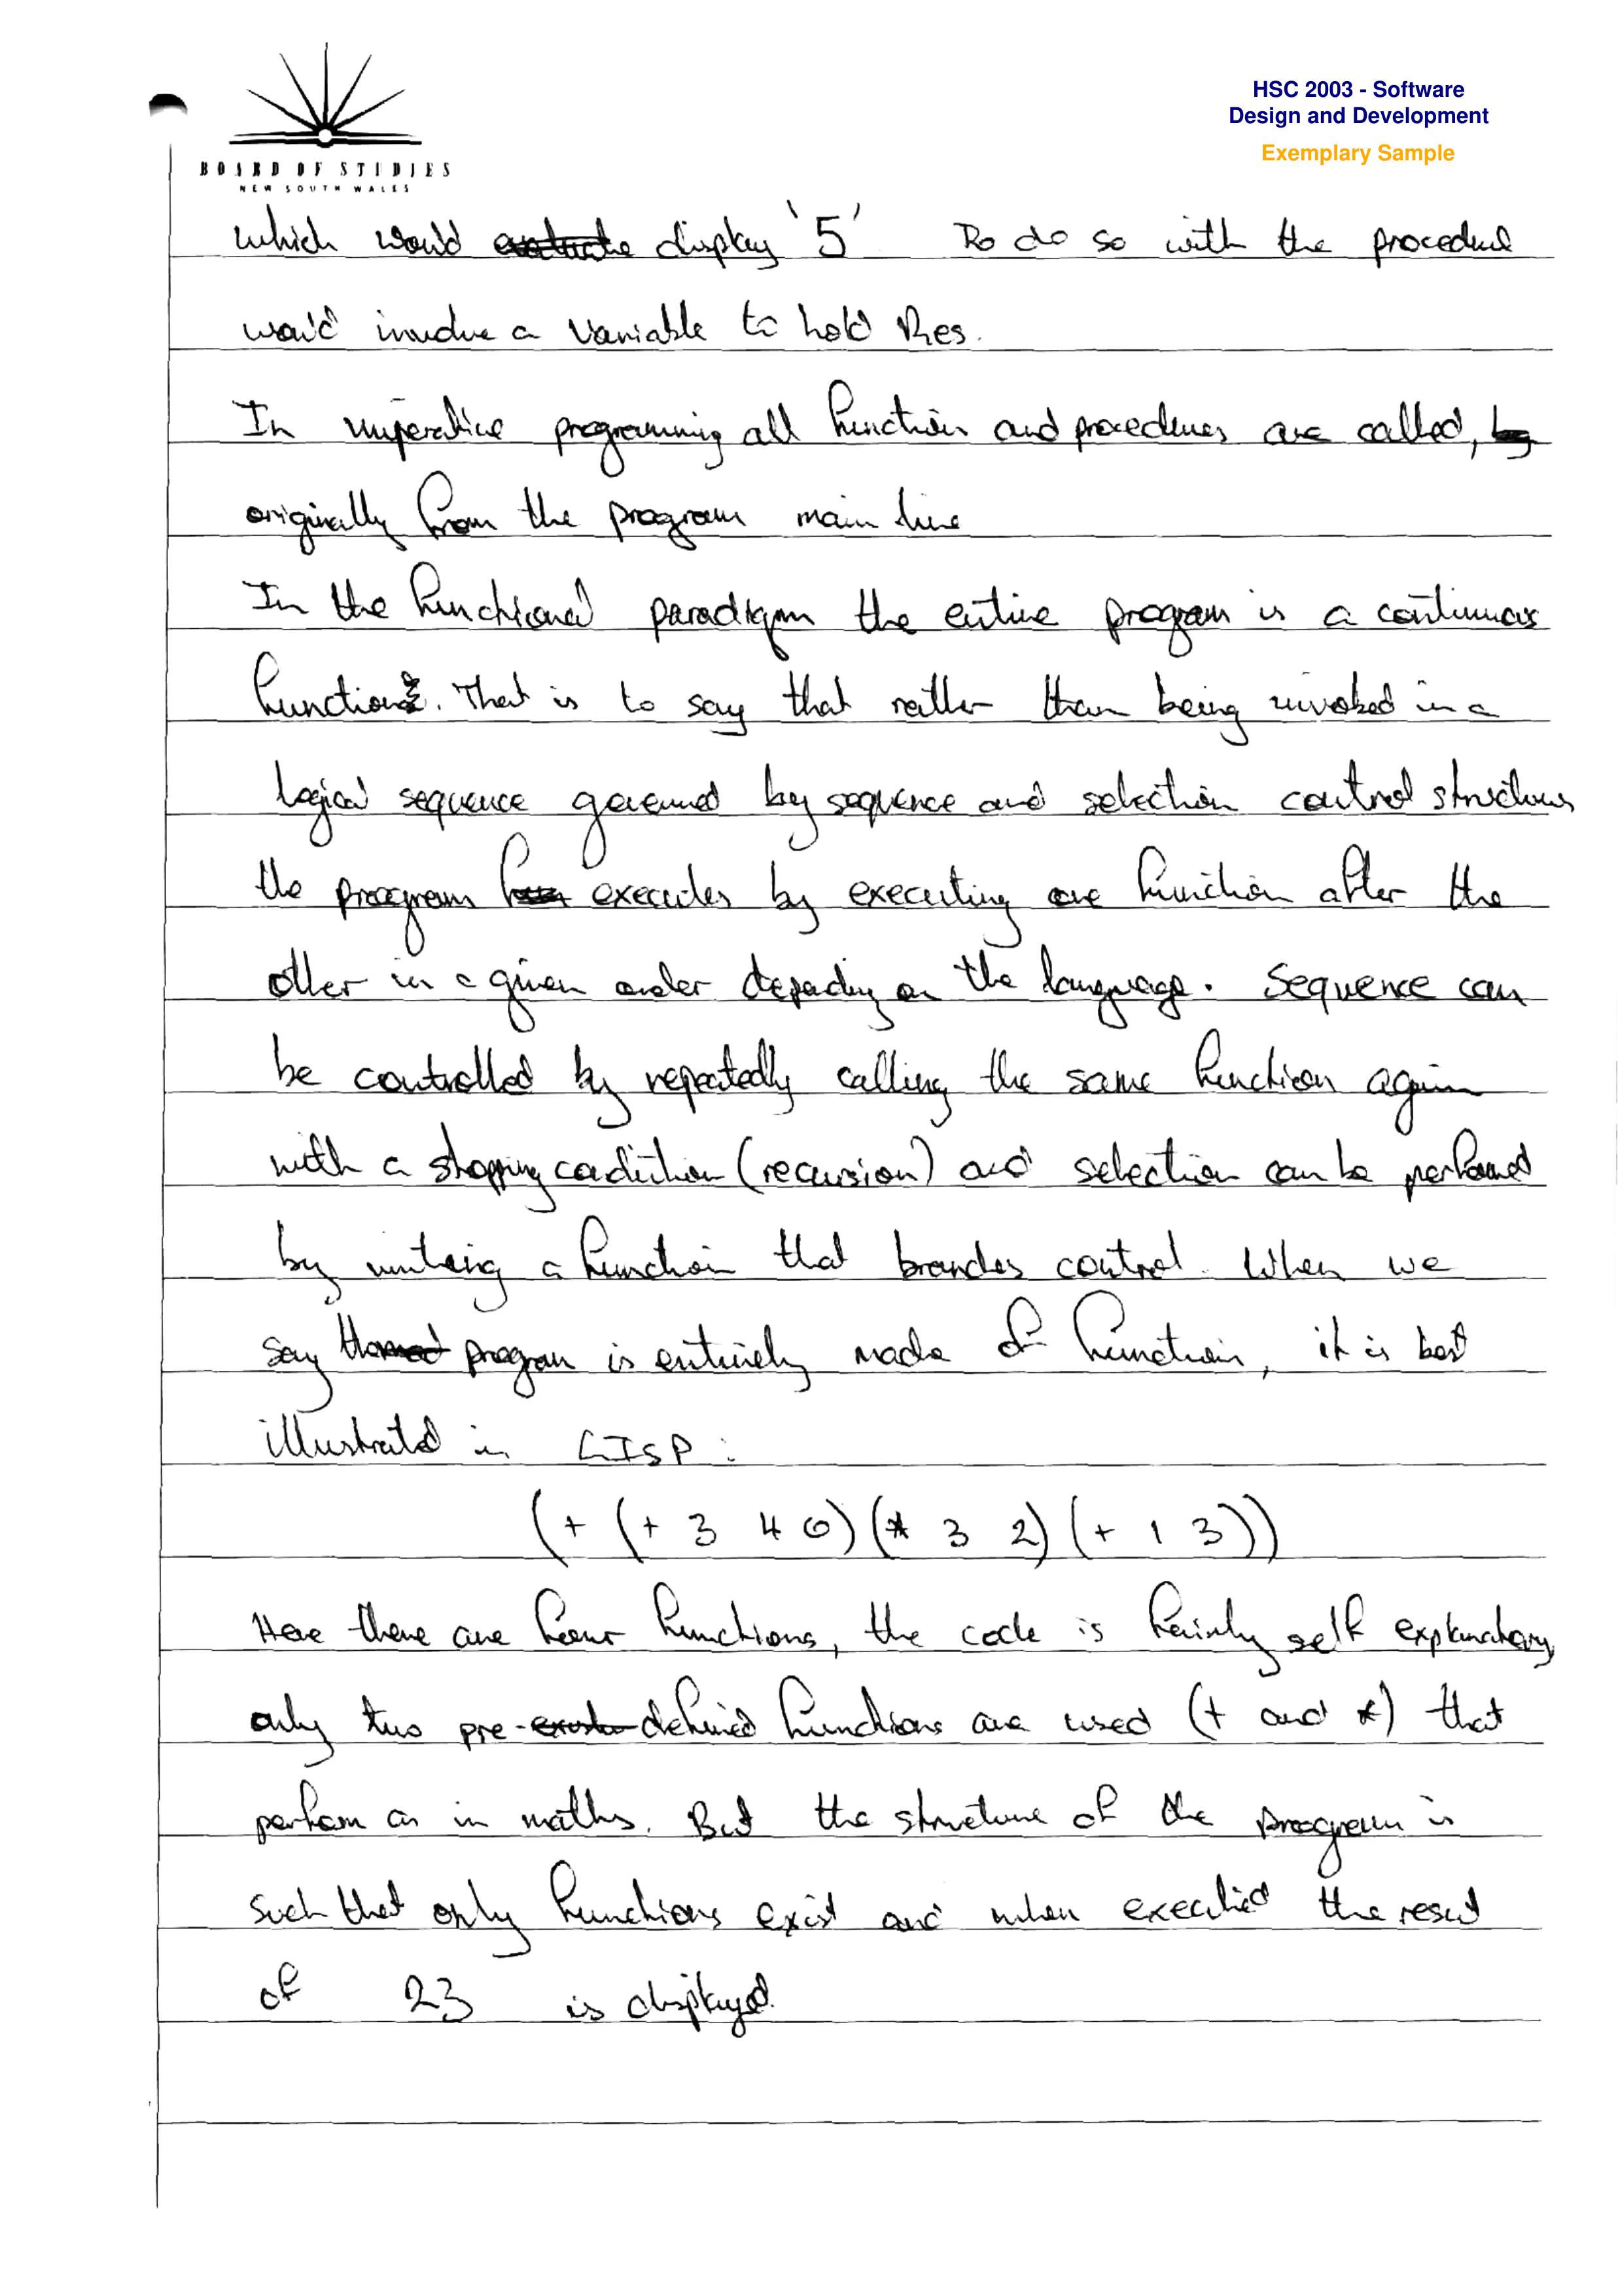 BOARD OF STUDIES
NEW SOUTH WALES
HSC 2003 - Software
Design and Development
Exemplary Sample
which would display '5' To do so with the procedure
would involve a variable to hold Res.
In imperative programming all function and procedures are called,
originally from the program main line
In the functional paradigm the entire program is a continuous
function. That is to say that rather than being invoked in a
logical sequence governed by sequence and selection control structures
the program executes by executing one function after the
other in a given order depending on the language. Sequence can
be controlled by repeatedly calling the same function again
with a stopping condition (recursion) and selection can be performed
by writing a function that branches control. When we
say program is entirely made of function, it is best
illustrated in LISP:
(+ (+ 3 4 6) (* 3 2) (+ 1 3))
Here there are four functions, the code is fairly self explanatory,
only two pre-defined functions are used (+ and *) that
perform as in maths. But the structure of the program is
such that only functions exist and when executed the result
of 23 is displayed.